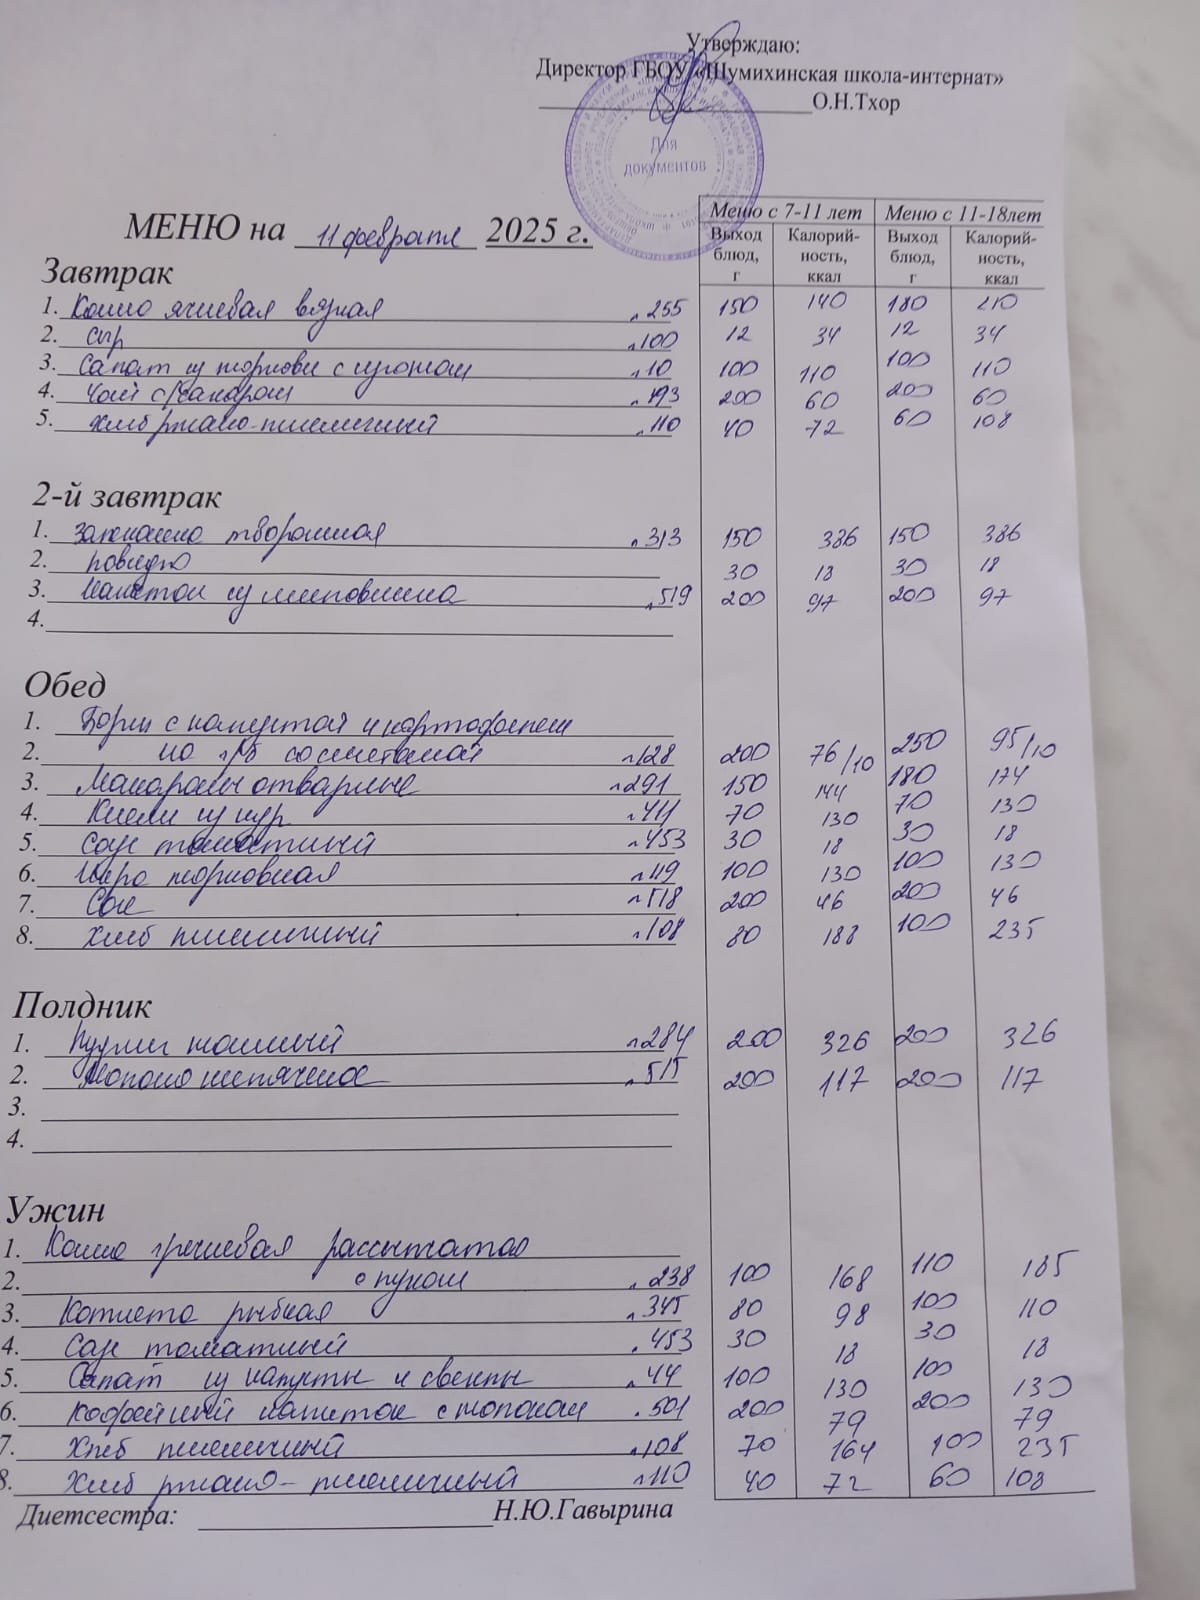 Утверждаю:
Директор ГБОУ «Шумихинская школа-интернат»
О.Н.Тхор
Для
документов
МЕНЮ на 11 февраля 2025 г.
Меню с 7-11 лет Меню с 11-18лет
Выход блюд, г Калорий-ность, ккал Выход блюд, г Калорий-ность, ккал
Завтрак
1. Каша ячневая вязкая л.255 150 140 180 210
2. Сыр л100 12 34 12 34
3. Салат из моркови с изюмом л10 100 110 100 110
4. Чай с/сахаром л.493 200 60 200 60
5. Хлеб ржано-пшеничный л110 40 72 60 108
2-й завтрак
1. Запеканка творожная л313 150 336 150 336
2. повидло 30 18 30 18
3. Напиток из шиповника л519 200 97 200 97
4.
Обед
1. Борщ с капустой и картофелем
2. на м/б со сметаной л128 200 76/10 250 95/10
3. Макароны отварные л291 150 144 180 174
4. л411 70 130 70 130
5. Соус томатный л453 30 18 30 18
6. Икра морковная л119 100 130 100 130
7. Сок л518 200 46 200 46
8. Хлеб пшеничный л108 80 188 100 235
Полдник
1. Пудинг манный л284 200 326 200 326
2. Молоко кипяченое л515 200 117 200 117
3.
4.
Ужин
1. Каша гречневая рассыпчатая
2. с луком л.238 100 168 110 185
3. Котлета рыбная л345 80 98 100 110
4. Соус томатный л453 30 18 30 18
5. Салат из капусты и свеклы л44 100 130 100 130
6. Кофейный напиток с молоком л501 200 79 200 79
7. Хлеб пшеничный л108 70 164 100 235
8. Хлеб ржано-пшеничный л110 40 72 60 108
Диетсестра: Н.Ю.Гавырина